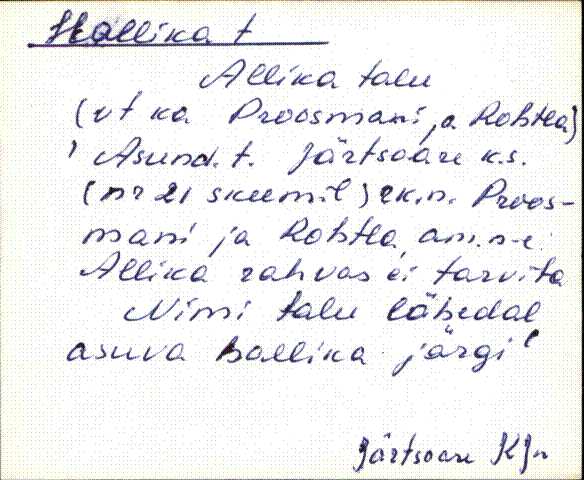 Hallika t
Allika talu
(vt ka Proosmani ja Rohtla)
' Asund. t. Järtsaare k.s.
(nr 21 skeemil) rk.n. Proos-
mani ja Rohtla, am.n-e.
Allika rahvas ei tarvita
Nimi talu lähedal
asuva hallika järgi'
Järtsaare KJn